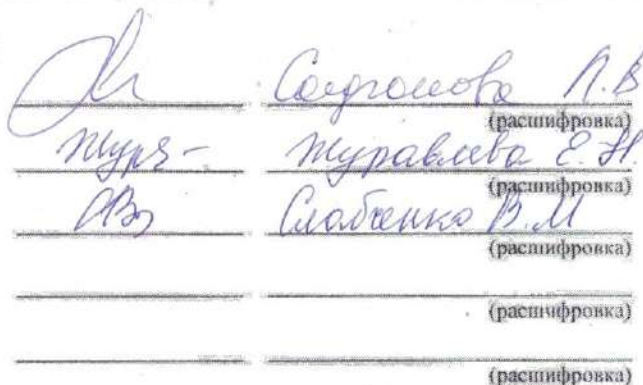 Сафронова Л.В
(расшифровка)
Журавлева Е.Н
(расшифровка)
Слабченко В.М
(расшифровка)
(расшифровка)
(расшифровка)